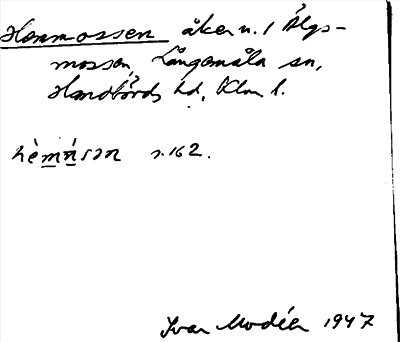 Hemmossen åker n. / Älgs-
mossen, Långemåla sn,
Handbörds hd, Klm l.
s. 162.
Ivar Modéer 1947